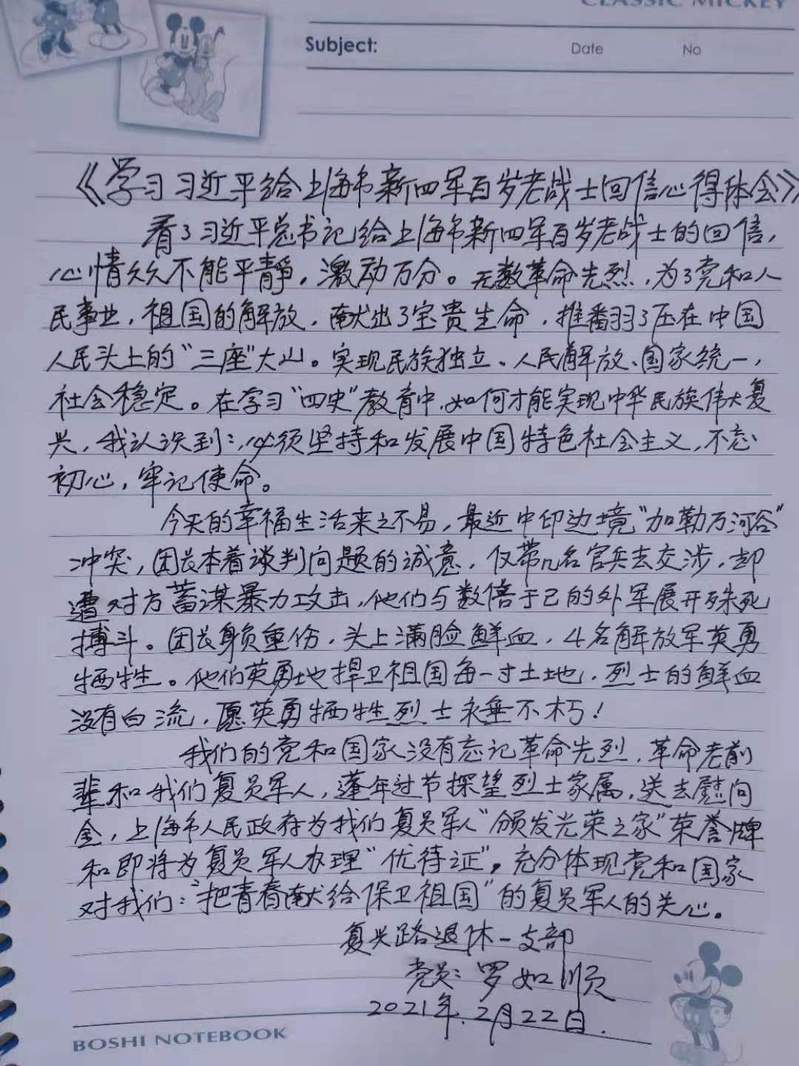 CLASSIC MICKEY
Subject:
Date
No
《学习习近平给上海市新四军百岁老战士回信心得体会》
看了习近平总书记给上海市新四军百岁老战士的回信,
心情久久不能平静,激动万分。无数革命先烈,为了党和人
民事业,祖国的解放,献出了宝贵生命,推翻了压在中国
人民头上的"三座"大山。实现民族独立、人民解放、国家统一,
社会稳定。在学习"四史"教育中,如何才能实现中华民族伟大复
兴,我认识到:必须坚持和发展中国特色社会主义,不忘
初心,牢记使命。
今天的幸福生活来之不易,最近中印边境"加勒万河谷"
冲突,团长本着谈判问题的诚意,仅带几名官兵去交涉,却
遭对方蓄谋暴力攻击,他们与数倍于己的外军展开殊死
搏斗。团长身负重伤,头上满脸鲜血,4名解放军英勇
牺牲。他们英勇地捍卫祖国每一寸土地,烈士的鲜血
没有白流,愿英勇牺牲烈士永垂不朽!
我们的党和国家没有忘记革命先烈,革命老前
辈和我们复员军人,逢年过节探望烈士家属,送去慰问
金,上海市人民政府为我们复员军人"颁发光荣之家"荣誉牌
和即将为复员军人办理"优待证",充分体现党和国家
对我们:"把青春献给保卫祖国"的复员军人的关心。
复兴路退休一支部
党员:罗如顺
2021年.2月22日.
BOSHI NOTEBOOK